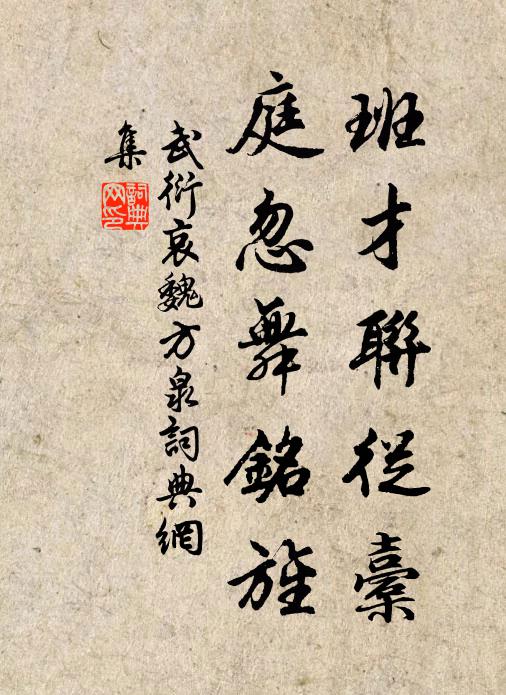 班才聯從橐
庭忽舞銘旌
武衍哀魏方泉詞典網
集
詞典
网印